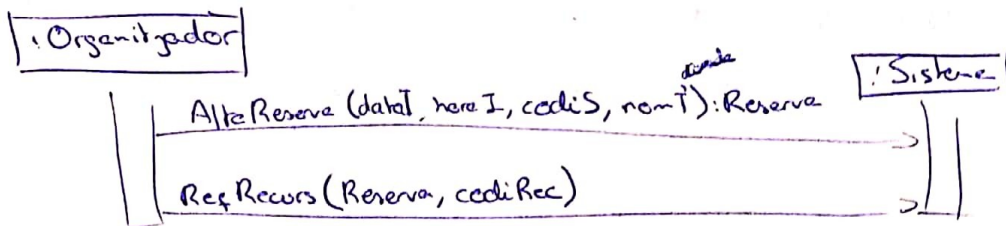 :Organitzador
:Sistema
AltaReserva (dataI, horaI, codiS, nomT):Reserva
ReqRecurs (Reserva, codiRec)